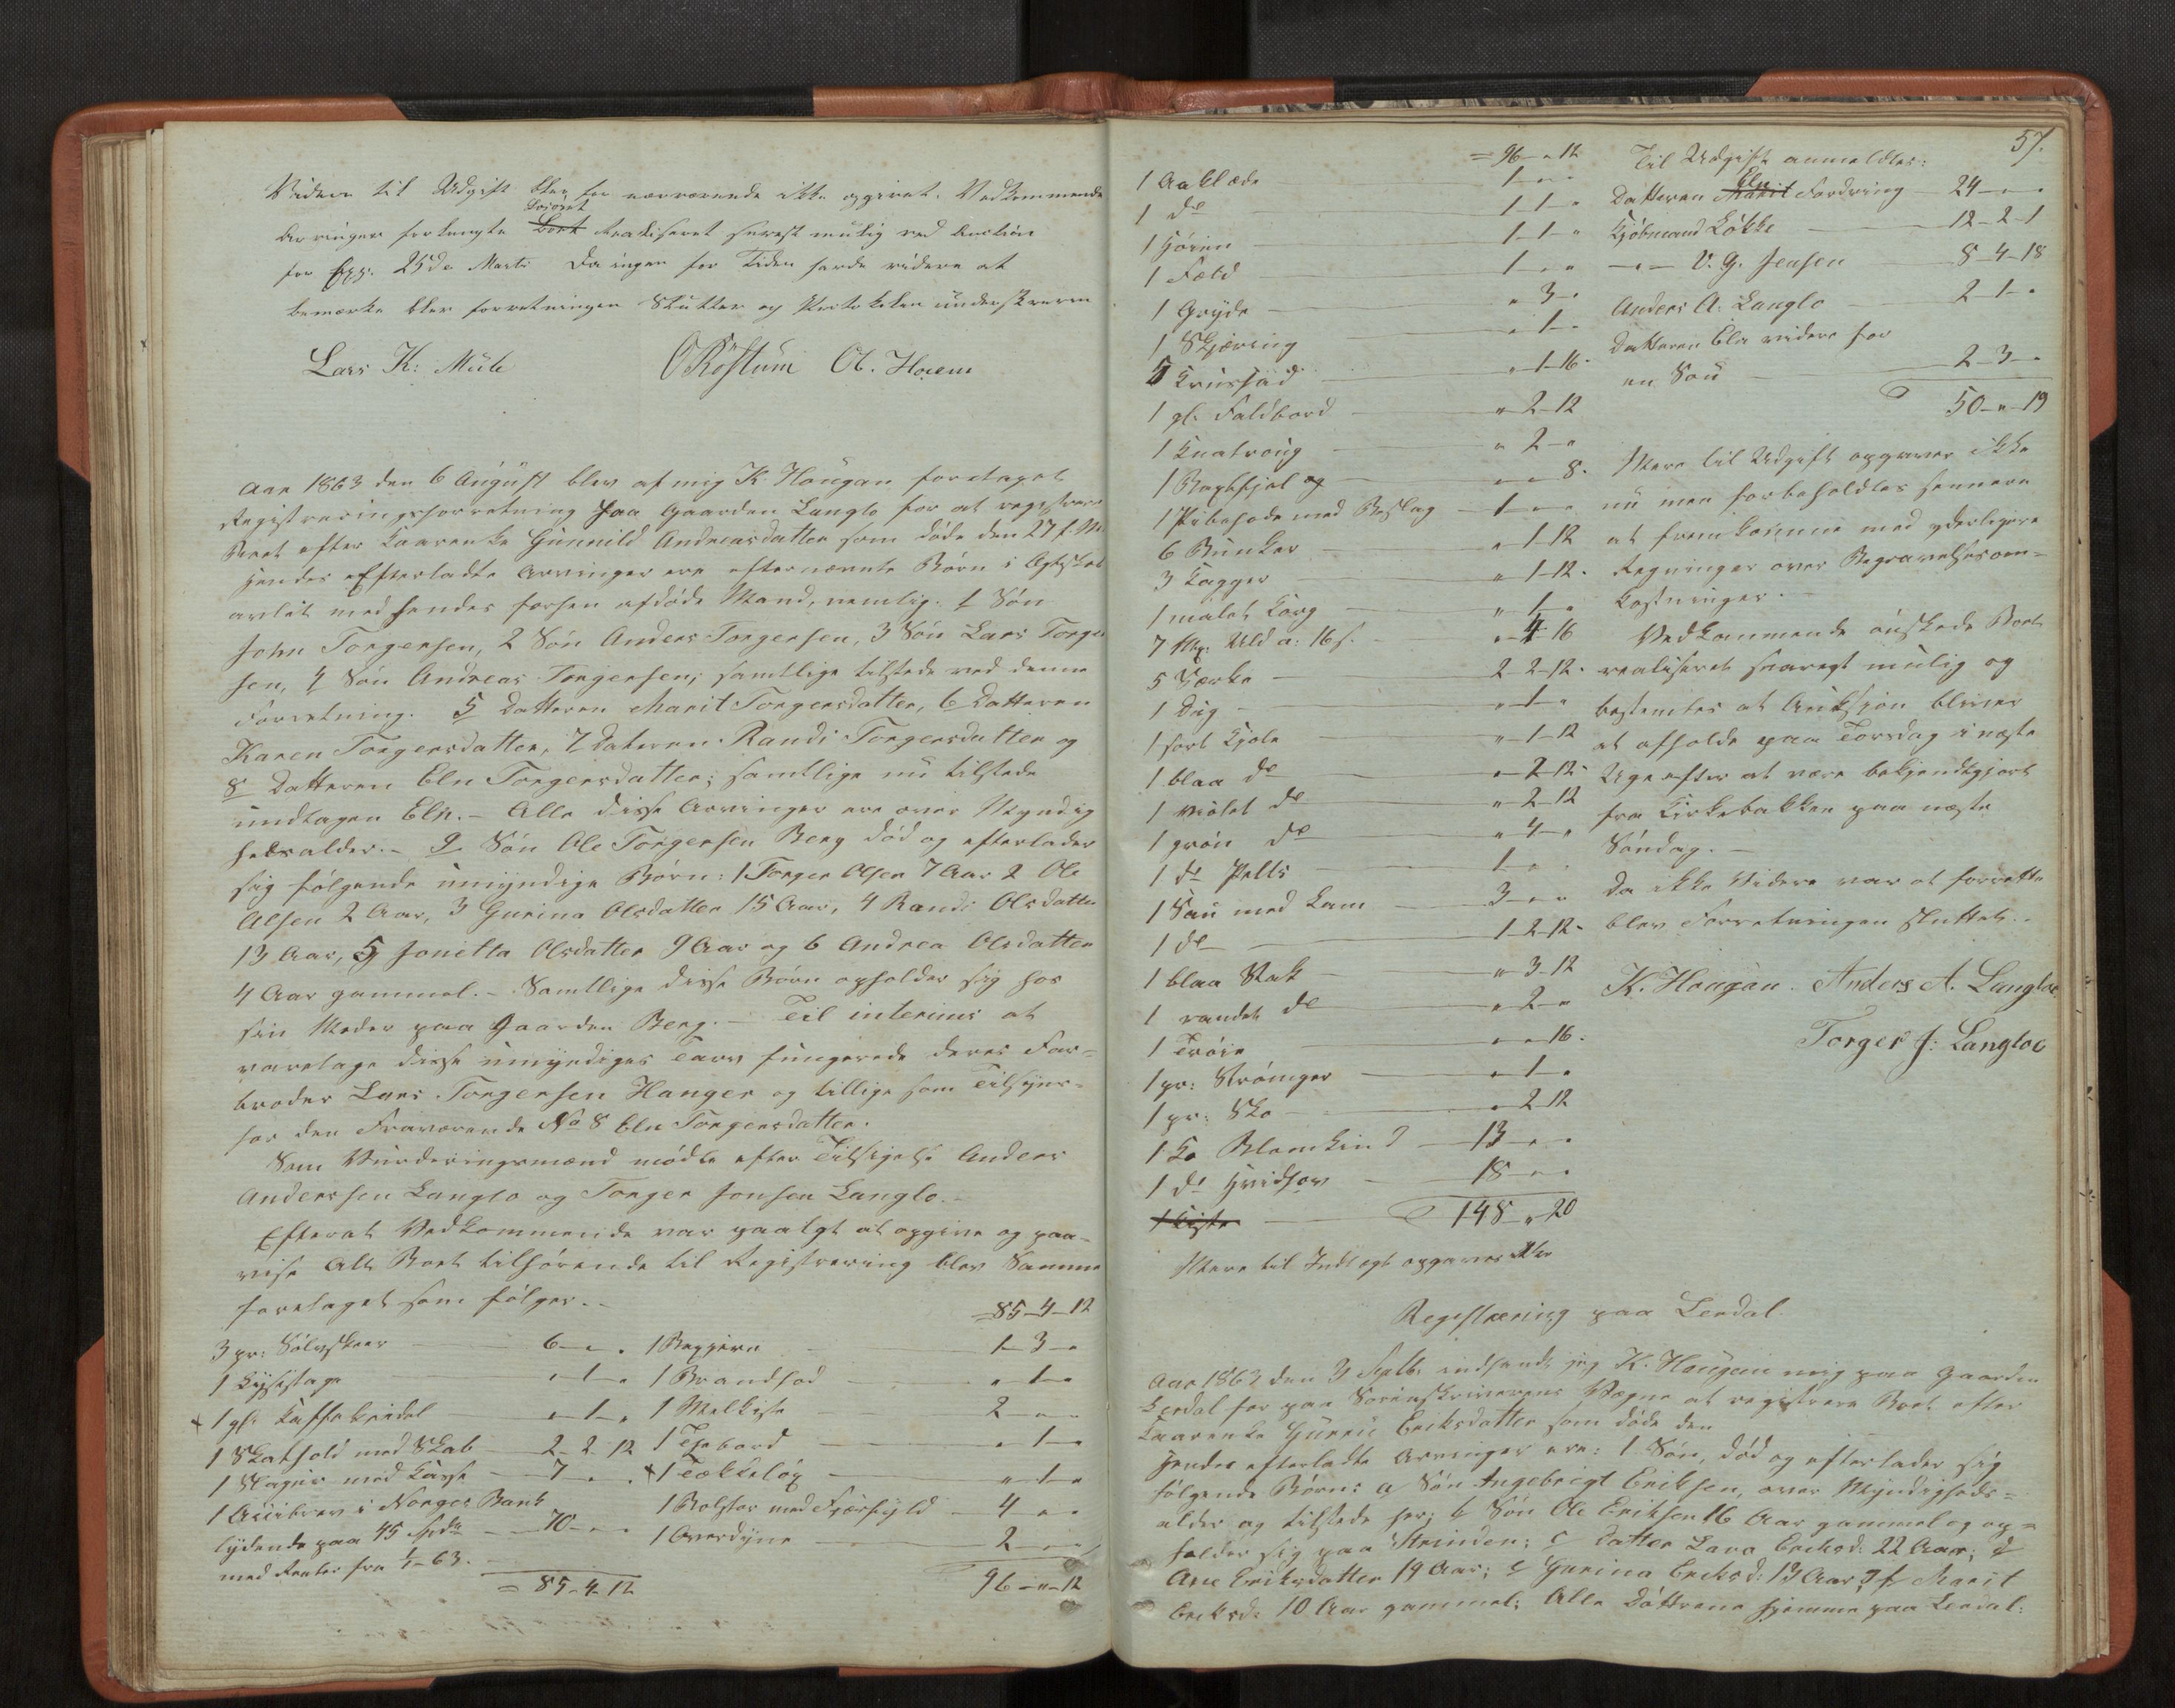 Videre til Udgift blev for nærværende ikke opgivet. Vedkommende
Arvinger forlangte Boet realiseret snarest mulig ved Auction
for Exp. 25de Marts. Da ingen for Tiden havde videre at
bemærke blev forretningen Sluttet og Protokolen underskreven
Lars K: Mule ORöstum Ol. Horem
Aar 1863 den 6 August blev af mig K. Hougan foretaget
Registreringsforretning paa Gaarden Langlo for at registrere
Boet efter Kaarenke Gunnild Andreasdatter som døde den 27 f. M.
hendes efterladte Arvinger ere efternævnte Børn i Ægteskab
avlet med hendes forhen afdøde Mand, nemlig: 1 Søn
John Torgersen, 2 Søn Anders Torgersen, 3 Søn Lars Torger
sen, 4 Søn Andreas Torgersen; samtlige tilstede ved denne
Forretning. 5 Datteren Marit Torgersdatter, 6 Datteren
Karen Torgersdatter, 7 Dateren Randi Torgersdatter og
8 Datteren Eln Torgersdatter; samtlige nu tilstede
undtagen Eln. - Alle disse Arvinger ere over Myndig
hedsalder. - 9 Søn Ole Torgersen Berg død og efterlader
sig følgende umyndige Børn: 1 Torger Olsen 7 Aar 2 Ole
Olsen 2 Aar, 3 Gurina Olsdatter 15 Aar, 4 Randi Olsdatter
13 Aar, 5 Jonetta Olsdatter 9 Aar og 6 Andrea Olsdatter
4 Aar gammel. - Samtlige disse Børn opholder sig hos
sin Moder paa Gaarden Berg. - Til interims at
varetage disse umyndiges Tarv fungerede deres Far=
broder Lars Torgersen Hanger og tillige som Tilsyns=
for den Fraværende No 8 Eln Torgersdatter.
Som Vurderingsmænd mødte efter Tilsigelse Anders
Anderssen Langlo og Torger Jonsen Langlo. -
Efterat Vedkommende var paalagt at opgive og paa=
vise Alt Boet tilhørende til Registrering blev Samme
foretaget som følger. -
3 pr: Sølvskeer 6 - " - "
1 Lysestage " - 1 - "
1 gl: Kaffekjedel " - 1 - "
1 Skathold med Skab 2 - 2 - 12
1 Slagur med Kasse 7 - " - "
1 Actibrev i Norges Bank
lydende paa 45 Spdr 70 - " - "
med Renter fra 1/1-63.
= 85 - 4 - 12
= 85 - 4 - 12
1 Bagjern 1 - 3 - "
1 Brandfod " - 1 - "
1 Melkiste 2 - " - "
1 Thebord " - 1 - "
1 Tækkeløp " - 1 - "
1 Bolster med Fjærfyld 4 - " - "
1 Overdyne 2 - " - "
96 - " - 12
57.
= 96 - " 12
1 Aaklæde 1 - " - "
1 do 1 - 1 - "
1 Hørien 1 - 1 - "
1 Fæld 1 - " - "
1 Gryde " - 3 - "
1 Skjæring " - 1 - "
5 Krusfad " - 1 - 16
1 gl: Foldbord " 2 - 12
1 Knatroug " 2 - "
1 Bagefjel og " - " 8.
1 Pibehode med Beslag 1 - " - "
6 Bunker " 1 - 12
3 Kagger " 1 - 12
1 malet Korg " 1 - "
7 Mrk. Uld a: 16 s. " 4 16
5 Særke 2 2 - 12
1 Dug " 1 - "
1 sort Kjole " 1 - 12
1 blaa do " 2 - 12
1 violet do " 2 - 12
1 grøn do " 4 - "
1 do Pelts 1 - " - "
1 Sau med Lam 3 - " - "
1 do 1 - 2 - 12
1 blaa Stak " 3 - 12
1 randet do " 2 - "
1 Trøie " - " 16
1 pr: Strømper " - 1 - "
1 pr: Sko " 2 12
1 Ko Blomkind 13 - " - "
1 do Hvidhov 18 - " - "
1 Kiste 148 - " 20
Mere til Indtægt opgaves ikke
Til Udgift anmeldtes:
Datteren Marit Eln Fordring 24 - " - "
Kjøbmand Løkke 12 - 2 - 1
- " - V. G. Jensen 8 - 4 - 18
Anders A. Langlo 2 - 1 - "
Datteren Eln videre for
en Sau 2 - 3 - "
50 - " - 19
Mere til Udgift opgaves ikke
nu men forbeholdtes sennere
at fremkomme med yderligere
Regninger over Begravelsesom=
kostninger.
Vedkommende ønskede Boet
realiseret snarest mulig og
bestemtes at Auksjon bliver
at afholde paa Torsdag i næste
Uge efter at være bekjendtgjort
fra Kirkebakken paa næste
Søndag. -
Da ikke Videre var at forrette
blev Forretningen sluttet. -
K. Hougan. Anders A. Langloe
Torger J: Langloe
Registrering paa Lerdal
Aar 1863 den 3 Septb. indfandt jeg K. Hougan mig paa Gaarden
Lerdal for paa Sorenskriverens Vægne at registrere Boet efter
Kaarenke Gurru Eriksdatter som døde den
hendes efterladte Arvinger ere: 1 Søn, død og efterlader sig
følgende Børn: a Søn Ingebrigt Eriksen, over Myndigheds=
alder og tilstede her; b Søn Ole Eriksen 16 Aar gammel og op=
holder sig paa Strinden; c Datter Lava Eriksd: 22 Aar; d
Ane Eriksdatter 19 Aar; e Gurina Eriksd: 13 Aar, f Marit
Eriksd: 10 Aar gammel; Alle Døttrene hjemme paa Lerdal: